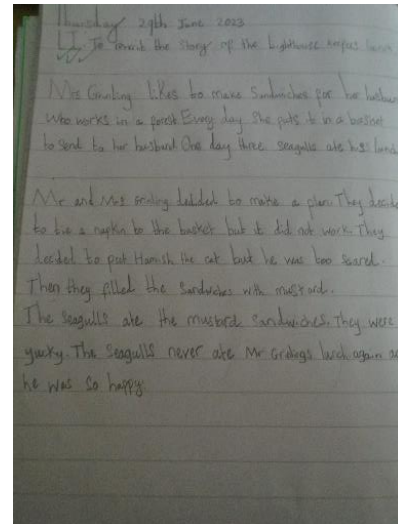 Thursday 29th June 2023
LI: To rewrite the story of the Lighthouse keepers lunch
Mrs Grinling likes to make Sandwiches for her husban
who works in a forest Every day She puts it in a basket
to send to her husband One day three seagulls ate his lunc
Mr and Mrs Grinling decided to make a plan. They decide
to tie a napkin to the basket but it did not work. They
decided to put Hamish the cat but he was too scared.
Then they filled the Sandwiches with mustard.
The Seagulls ate the mustard Sandwiches. They were
yucky. The Seagulls never ate Mr lunch again a
he was so happy.